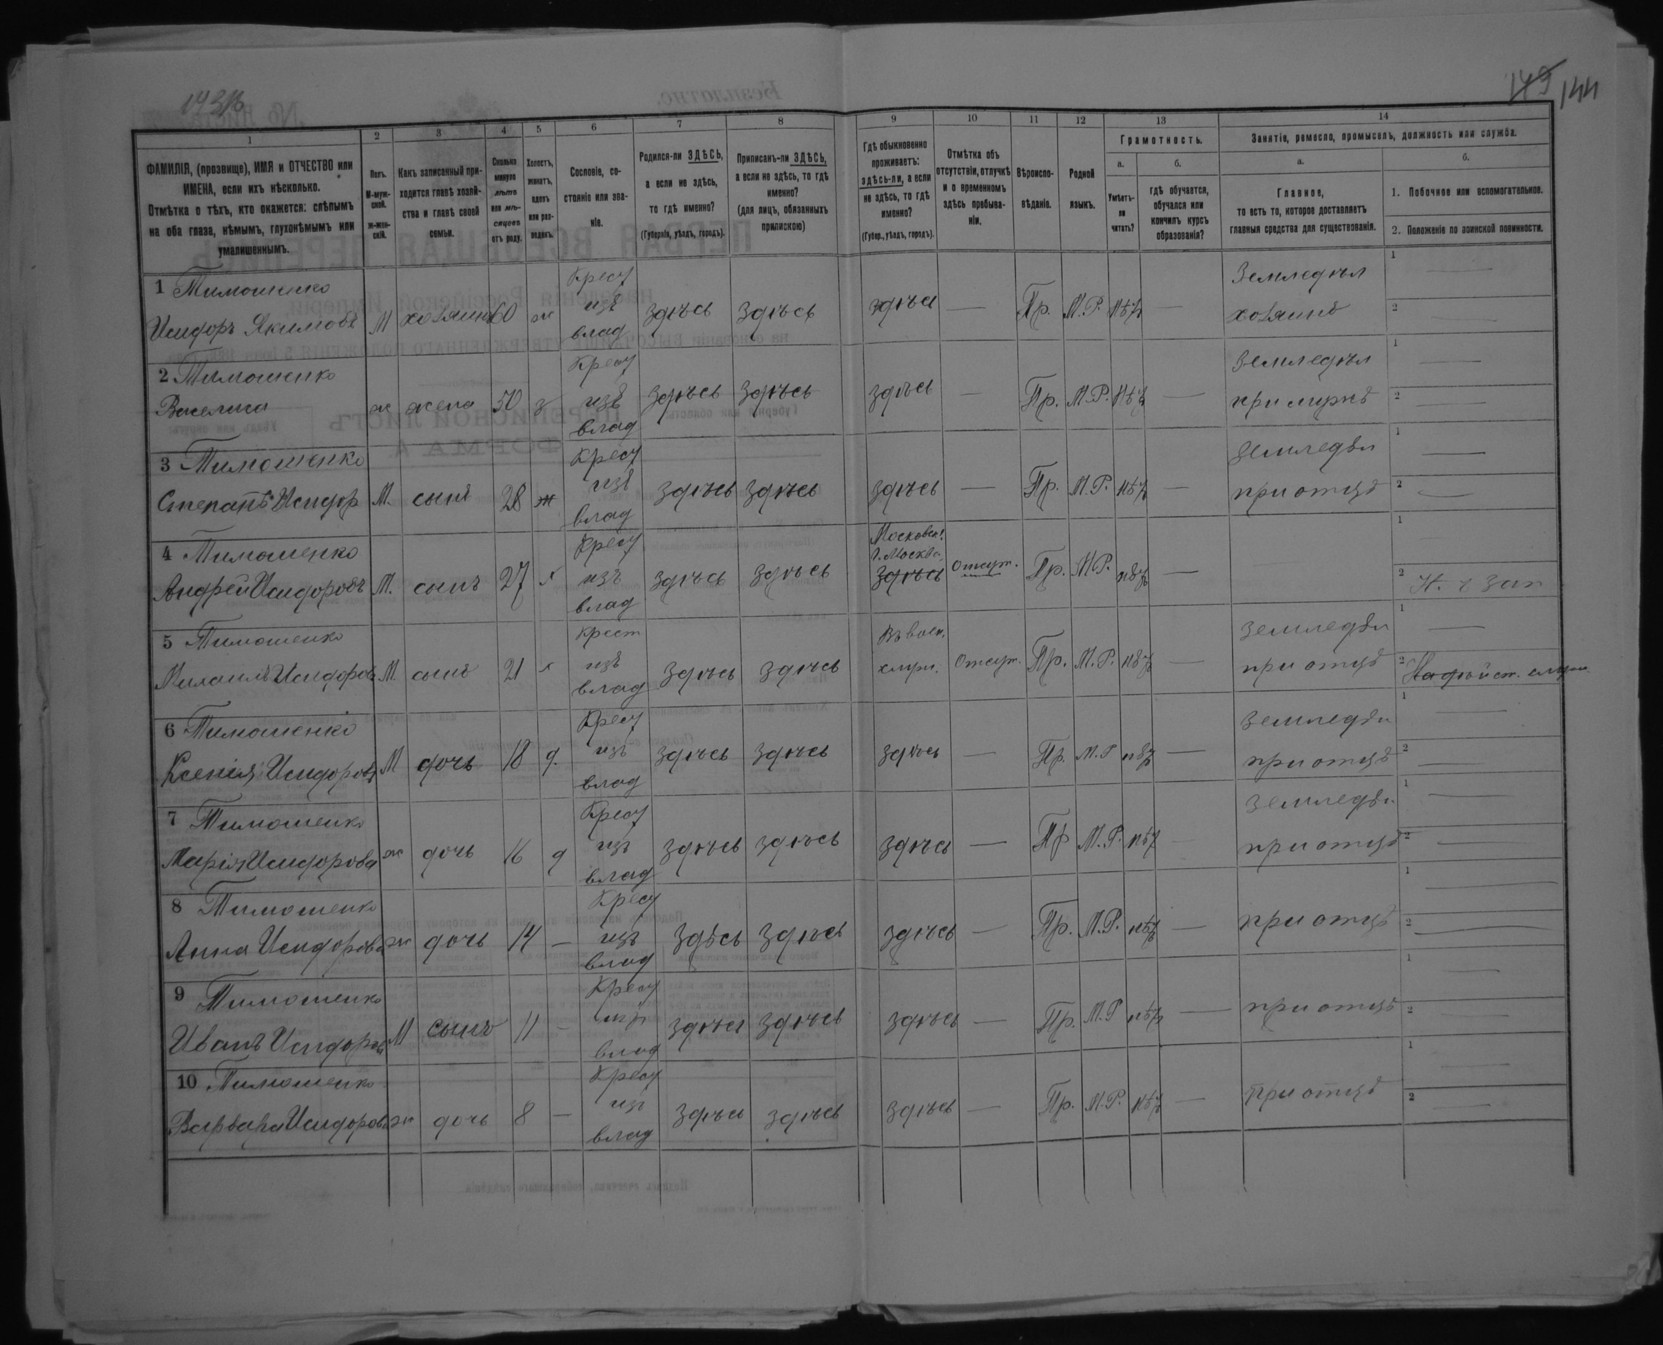 149 144
1 2 3 4 5 6 7 8 9 10 11 12 13 14
ФАМИЛІЯ, (прозвище), ИМЯ и ОТЧЕСТВО или ИМЕНА, если ихъ нѣсколько.
Отмѣтка о тѣхъ, кто окажется: слѣпымъ на оба глаза, нѣмымъ, глухонѣмымъ или умалишеннымъ.
Полъ.
М-мужской.
ж-женскій.
Какъ записанный приходится главѣ хозяйства и главѣ своей семьи.
Сколько минуло лѣтъ или мѣсяцевъ отъ роду.
Холостъ, женатъ, вдовъ или разведенъ.
Сословіе, состояніе или званіе.
Родился-ли ЗДѢСЬ, а если не здѣсь, то гдѣ именно?
(Губернія, уѣздъ, городъ).
Приписанъ-ли ЗДѢСЬ, а если не здѣсь, то гдѣ именно?
(для лицъ, обязанныхъ припискою)
Гдѣ обыкновенно проживаетъ: здѣсь-ли, а если не здѣсь, то гдѣ именно?
(Губер., уѣздъ, городъ).
Отмѣтка объ отсутствіи, отлучкѣ и о временномъ здѣсь пребываніи.
Вѣроисповѣданіе.
Родной языкъ.
Грамотность.
а. Умѣетъ-ли читать?
б. гдѣ обучается, обучался или кончилъ курсъ образованія?
Занятія, ремесло, промыселъ, должность или служба.
а. Главное, то есть то, которое доставляетъ главныя средства для существованія.
б.
1. Побочное или вспомогательное.
2. Положеніе по воинской повинности.
1 Тимошенко Крест Земледѣл 1 —
Исидоръ Якимовъ М хозяинъ 60 ж изъ влад здѣсь здѣсь здѣсь — Пр. М.Р. нѣтъ — хозяинъ 2
2 Тимошенко Крест Земледѣл 1 —
Василиса ж жена 50 з изъ влад здѣсь здѣсь здѣсь — Пр. М.Р. нѣтъ — при мужѣ 2 —
3 Тимошенко Крест Земледѣл 1 —
Степанъ Исидор М. сынъ 28 ж изъ влад здѣсь здѣсь здѣсь — Пр. М.Р. нѣтъ — при отцѣ 2 —
4 Тимошенко Крест Московск. г. Москва 1 —
Андрей Исидоровъ М. сынъ 27 х изъ влад здѣсь здѣсь здѣсь отсут. Пр. М.Р. нѣтъ — 2
5 Тимошенко крест Въ воен. земледѣл 1 —
Михаилъ Исидоров М. сынъ 21 х изъ влад здѣсь здѣсь служ. отсут. Пр. М.Р. нѣтъ — при отцѣ 2 На дѣйст. служ.
6 Тимошенко Крест земледѣл 1 —
Ксенія Исидорова М дочь 18 д. изъ влад здѣсь здѣсь здѣсь — Пр. М.Р нѣтъ — при отцѣ 2 —
7 Тимошенко Крест земледѣл 1 —
Марія Исидорова ж дочь 16 д изъ влад здѣсь здѣсь здѣсь — Пр М.Р. нѣтъ — при отцѣ 2 —
8 Тимошенко Крест 1 —
Анна Исидорова ж дочь 14 — изъ влад здѣсь здѣсь здѣсь — Пр. М.Р. нѣтъ — при отцѣ 2 —
9 Тимошенко Крест 1 —
Иванъ Исидоров М сынъ 11 — изъ влад здѣсь здѣсь здѣсь — Пр. М.Р нѣтъ — при отцѣ 2 —
10 Тимошенко Крест 1 —
Варвара Исидорова ж дочь 8 — изъ влад здѣсь здѣсь здѣсь — Пр. М.Р. нѣтъ — при отцѣ 2 —